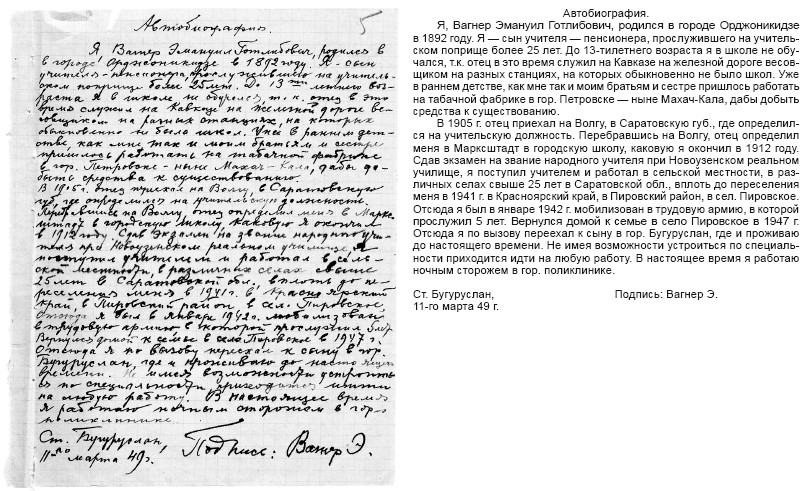 5
Автобиография.
Я Вагнер Эмануил Готлибович, родился в
в городе Орджоникидзе в 1892 году. Я - сын
учителя - пенсионера, прослужившего на учитель-
ском поприще более 25 лет. До 13ти летнего воз-
раста я в школе не обучался, т.к. отец в это
время служил на Кавказе на железной дороге ве-
совщиком на разных станциях, на которых
обыкновенно не было школ. Уже в раннем дет-
стве, как мне так и моим братьям и сестре
пришлось работать на табачной фабрике
в гор. Петровске - ныне Махач-Кала, дабы до-
быть средства к существованию.
В 1905 г. отец приехал на Волгу, в Саратовскую
губ., где определился на учительскую должность.
Перебравшись на Волгу, отец определил меня в Маркс-
штадт в городскую школу, каковую я окончил
в 1912 году. Сдав экзамен на звание народного учи-
теля при Новоузенском реальном училище, я
поступил учителем и работал в сель-
ской местности, в различных селах свыше
25 лет в Саратовской обл., вплоть до пе-
реселения меня в 1941 г. в Красноярский
край, в Пировский район в сел. Пировское.
Отсюда я был в январе 1942 г. мобилизован
в трудовую армию в которой прослужил 5 лет.
Вернулся домой к семье в село Пировское в 1947 г.
Отсюда я по вызову переехал к сыну в гор.
Бугуруслан, где и проживаю до настоящего
времени. Не имея возможности устроить-
ся по специальности, приходится идти
на любую работу. В настоящее время
я работаю ночным сторожем в гор-
поликлинике.
Ст. Бугуруслан,
11-го марта 49 г.
Подпись: Вагнер Э.
Автобиография.
Я, Вагнер Эмануил Готлибович, родился в городе Орджоникидзе
в 1892 году. Я — сын учителя — пенсионера, прослужившего на учитель-
ском поприще более 25 лет. До 13-тилетнего возраста я в школе не обу-
чался, т.к. отец в это время служил на Кавказе на железной дороге весов-
щиком на разных станциях, на которых обыкновенно не было школ. Уже
в раннем детстве, как мне так и моим братьям и сестре пришлось работать
на табачной фабрике в гор. Петровске — ныне Махач-Кала, дабы добыть
средства к существованию.
В 1905 г. отец приехал на Волгу, в Саратовскую губ., где определил-
ся на учительскую должность. Перебравшись на Волгу, отец определил
меня в Марксштадт в городскую школу, каковую я окончил в 1912 году.
Сдав экзамен на звание народного учителя при Новоузенском реальном
училище, я поступил учителем и работал в сельской местности, в раз-
личных селах свыше 25 лет в Саратовской обл., вплоть до переселения
меня в 1941 г. в Красноярский край, в Пировский район, в сел. Пировское.
Отсюда я был в январе 1942 г. мобилизован в трудовую армию, в которой
прослужил 5 лет. Вернулся домой к семье в село Пировское в 1947 г.
Отсюда я по вызову переехал к сыну в гор. Бугуруслан, где и проживаю
до настоящего времени. Не имея возможности устроиться по специаль-
ности приходится идти на любую работу. В настоящее время я работаю
ночным сторожем в гор. поликлинике.
Ст. Бугуруслан,
Подпись: Вагнер Э.
11-го марта 49 г.